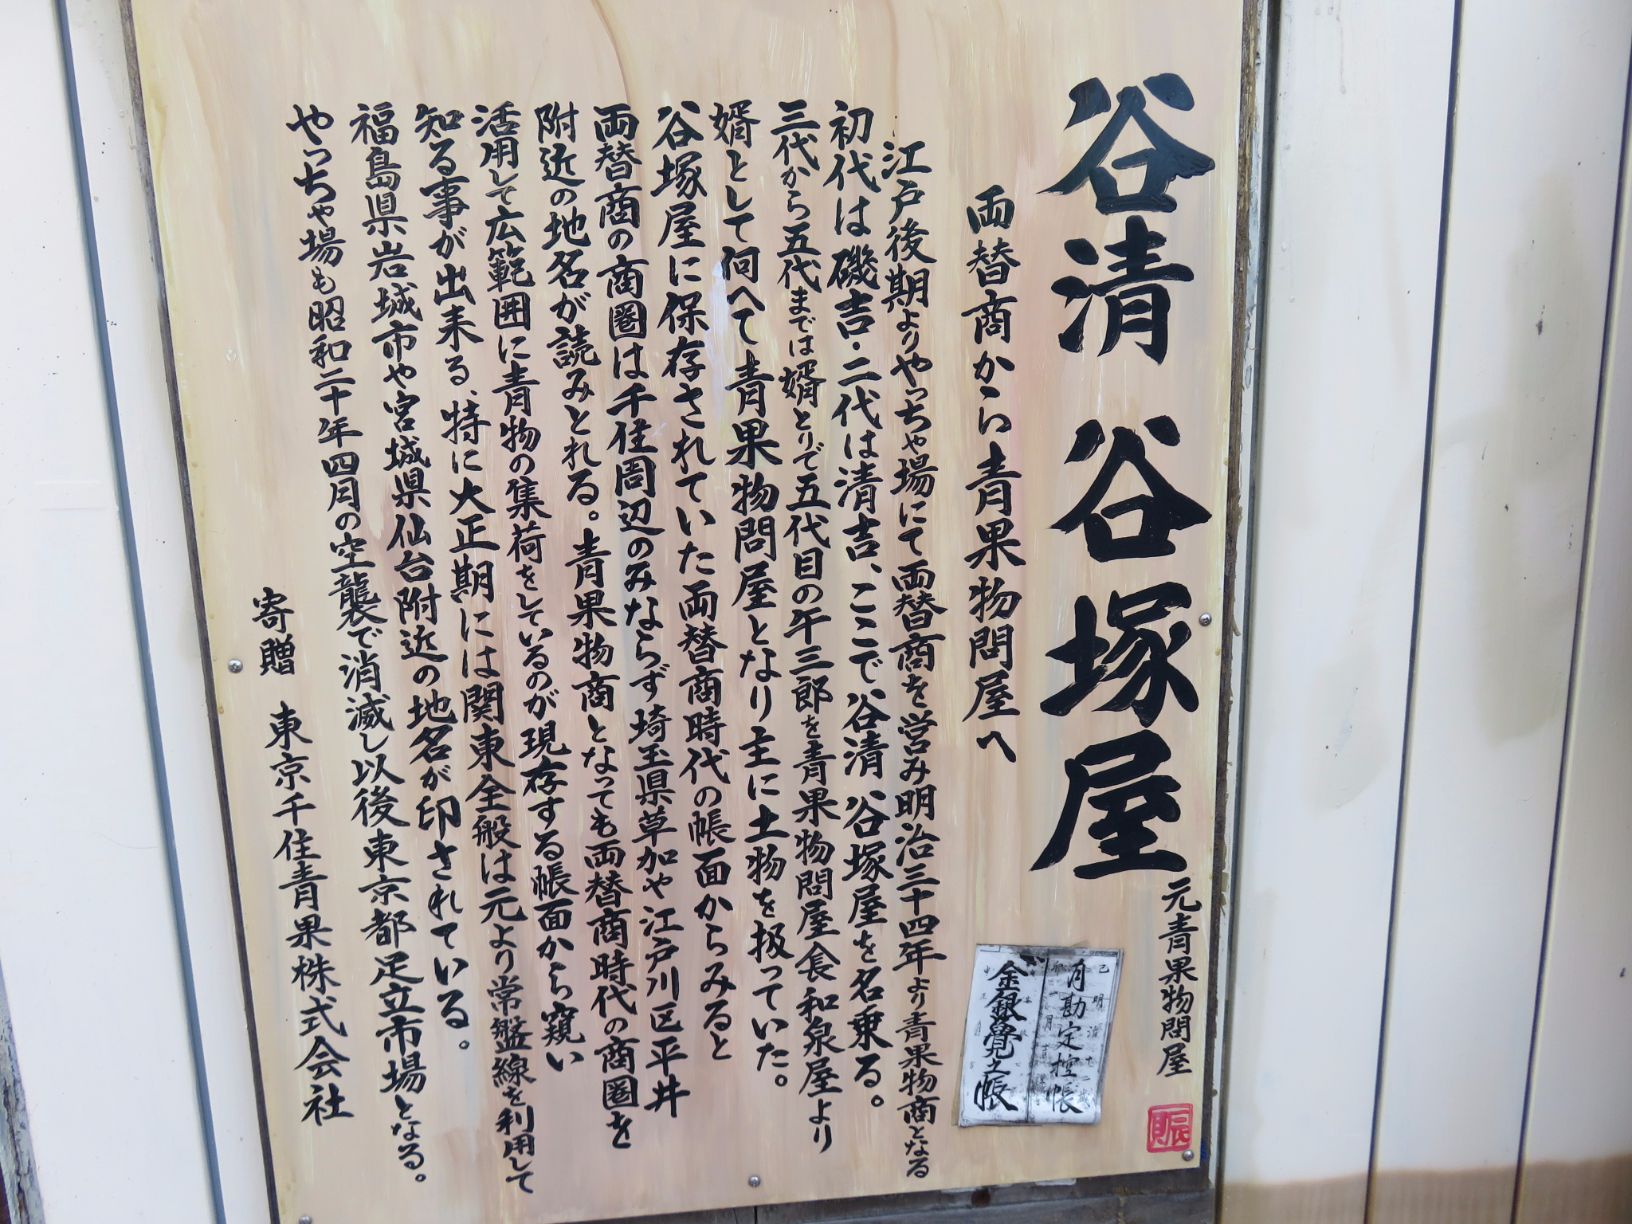 谷清 谷塚屋
元青果物問屋
両替商から青果物問屋へ
江戸後期よりやっちゃ場にて両替商を営み明治三十四年より青果物商となる
初代は磯吉・二代は清吉、ここで谷清 谷塚屋を名乗る。
三代から五代までは婿とりで五代目の午三郎を青果物問屋長和泉屋より
婿として伺へて青果物問屋となり主に土物を扱っていた。
谷塚屋に保存されていた両替商時代の帳面からみると
両替商の商圏は千住周辺のみならず埼玉県草加や江戸川区平井
附近の地名が読みとれる。青果物商となっても両替商時代の商圏を
活用して広範囲に青物の集荷をしているのが現存する帳面から窺い
知る事が出来る、特に大正期には関東全般は元より常盤線を利用して
福島県岩城市や宮城県仙台附近の地名が印されている。
やっちゃ場も昭和二十年四月の空襲で消滅し以後東京都足立市場となる。
寄贈 東京千住青果株式会社
月勘定控帳
金銀覚之帳